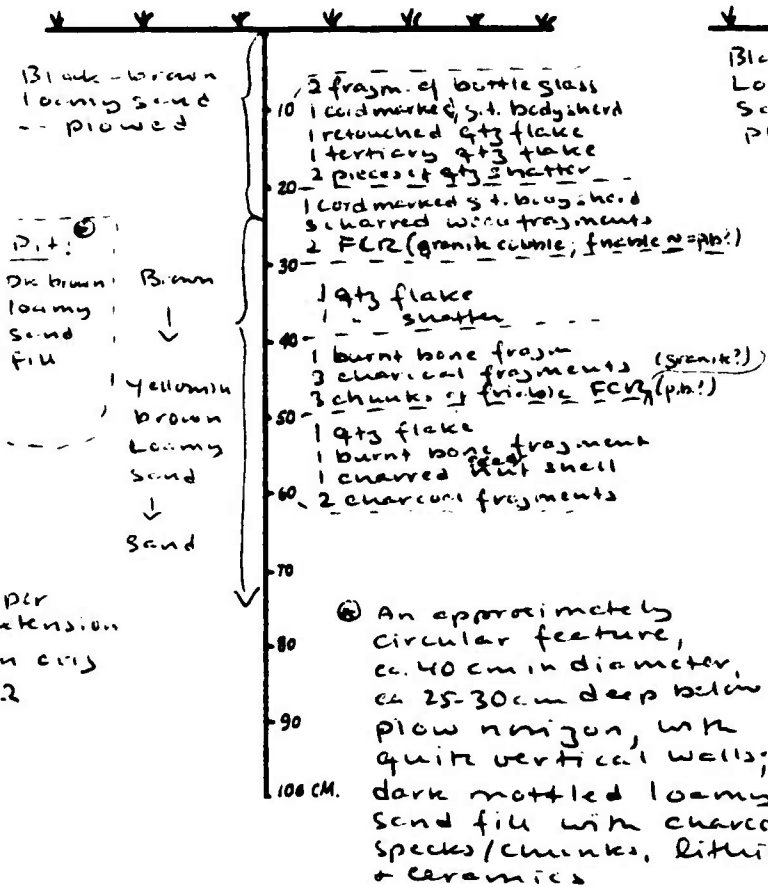 Black-brown
loamy sand
-- plowed
Pit?
Dk brown
loamy
sand
fill
Brown
↓
Yellowish
brown
Loamy
Sand
↓
Sand
per
tension
10
20
30
40
50
60
70
80
90
100 CM.
2 fragm. of bottle glass
1 cordmarked, g.t. bodysherd
1 retouched qtz flake
1 tertiary qtz flake
2 pieces of qtz shatter
1 cordmarked g.t. bodysherd
charred wood fragments
2 FCR (granite cobble; friable
1 qtz flake
1 " shatter
1 burnt bone fragm
3 charcoal fragments
3 chunks of friable FCR (granite?)
1 qtz flake
1 burnt bone fragment
1 charred nut shell
2 charcoal fragments
⊛ An approximately
circular feature,
ca. 40 cm in diameter,
ca 25-30 cm deep below
plow horizon, with
quite vertical walls;
dark mottled loamy
sand fill with charco
specks/chunks, lithi
+ ceramics
Bla
Lo
Sa
pl